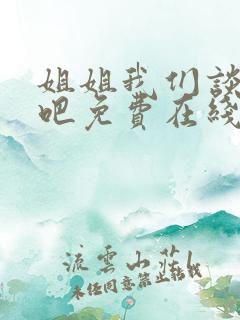 姐姐我们谈
吧免費在綫
流雲山莊l
未经同意禁止转载